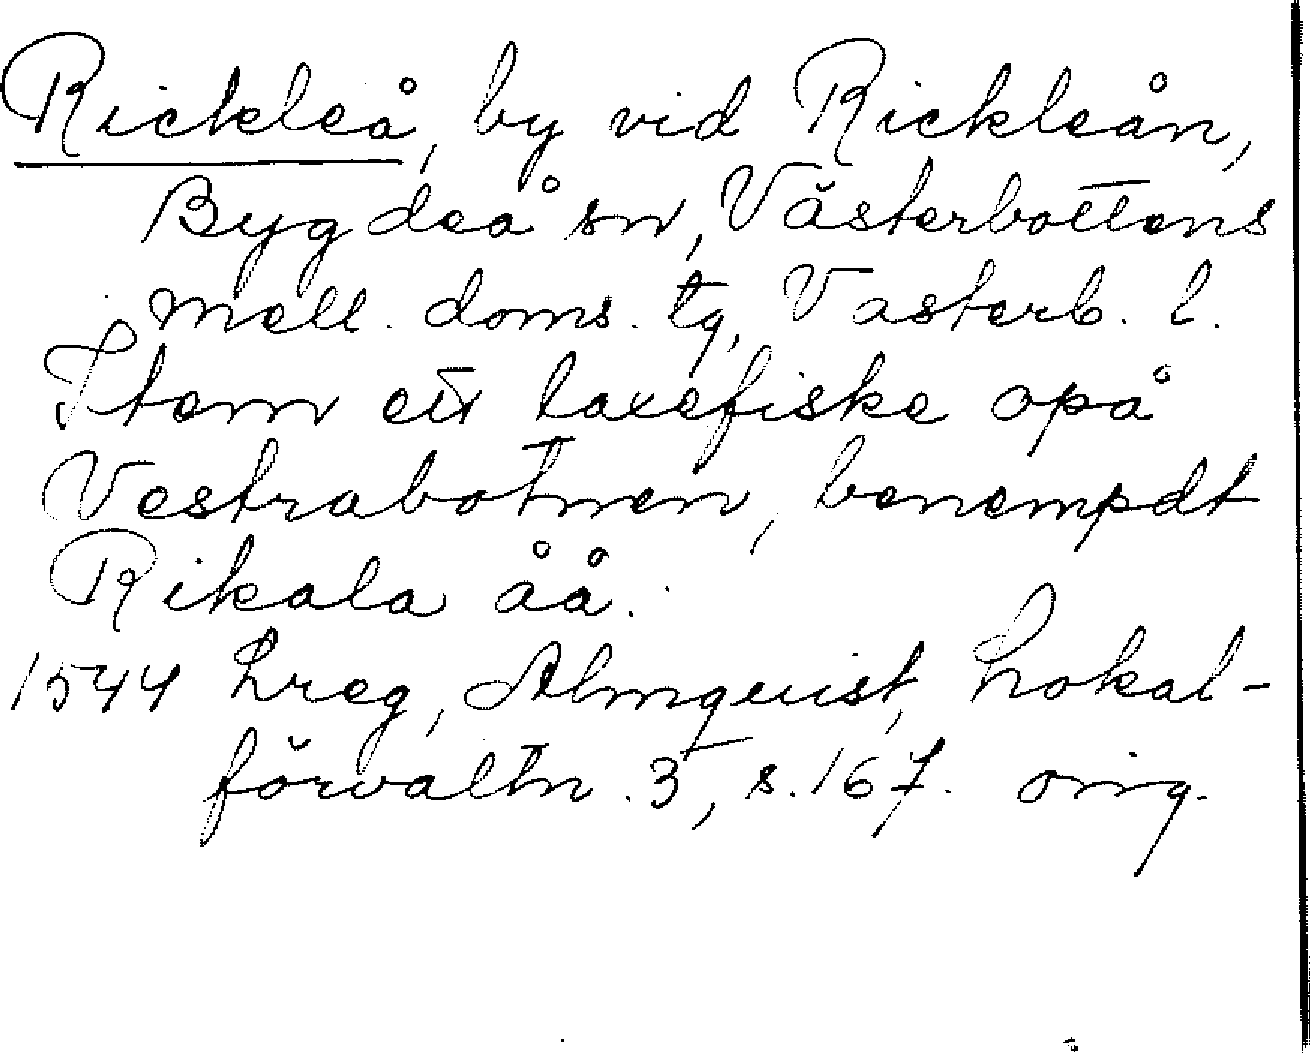 Rickleå, by vid Rickleån,
Bygdeå sn, Västerbottens
mell. doms. tg, Vasterb. l.
Item ett laxefiske opå
Vestrabotnen, benempdt
Rikala åå.
1544 Lreg, Almquist, Lokal-
förvaltn. 3, s. 167. orig.